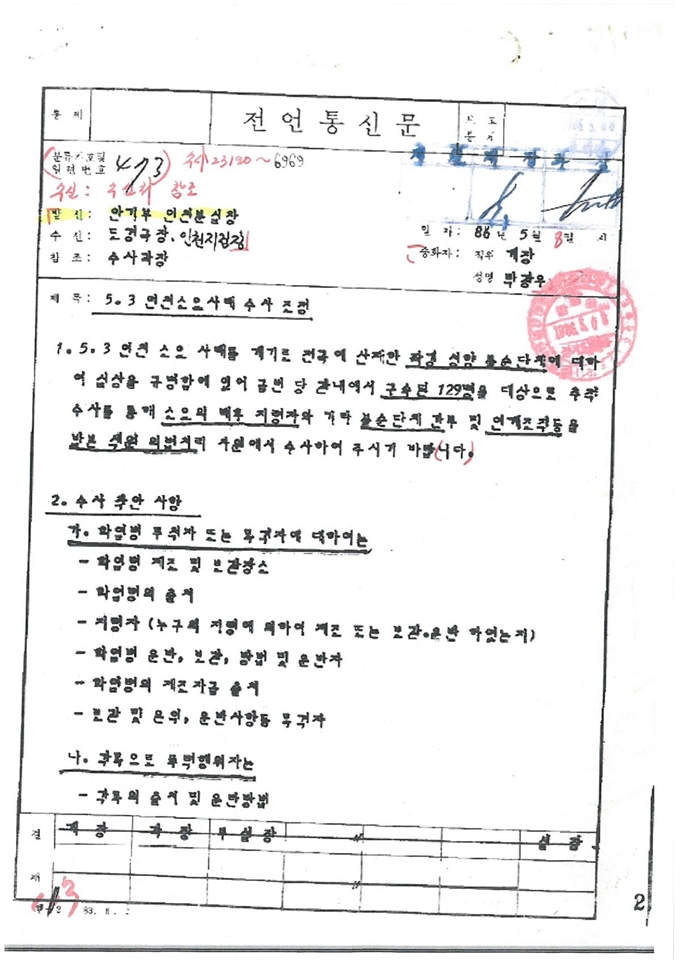 통 제
전 언 통 신 문
보 도
분류기호및
일련번호
413
수사 23190~6969
수신: 수신처 참조
발 신: 안기부 인천분실장
수 신: 도경국장, 인천지검장
참 조: 수사과장
일 자: 86년 5월 8일 시
송화자: 직위 계장
성명 박광우
제 목: 5.3 인천소요사태 수사 조정
1. 5.3 인천 소요 사태를 계기로 전국에 산재한 좌경 성향 불순단체에 대하
여 실상을 규명함에 있어 금번 당 관내에서 구속된 129명을 대상으로 추궁
수사를 통해 소요의 배후 지령자와 기타 불순단체 간부 및 연계조직등을
발본 색원 의법처리 차원에서 수사하여 주시기 바랍니다.
2. 수사 착안 사항
가. 화염병 투척자 또는 목격자에 대하여는
- 화염병 제조 및 보관장소
- 화염병의 출처
- 지령자 (누구의 지령에 의하여 제조 또는 보관.운반 하였는지)
- 화염병 운반, 보관, 방법 및 운반자
- 화염병의 제조자금 출처
- 보관 및 은익, 운반사항등 목격자
나. 각목으로 폭력행위자는
- 각목의 출처 및 운반방법
결 계 장 과 장 부실장 〃 실 장
재 〃
413
83. 6.
2